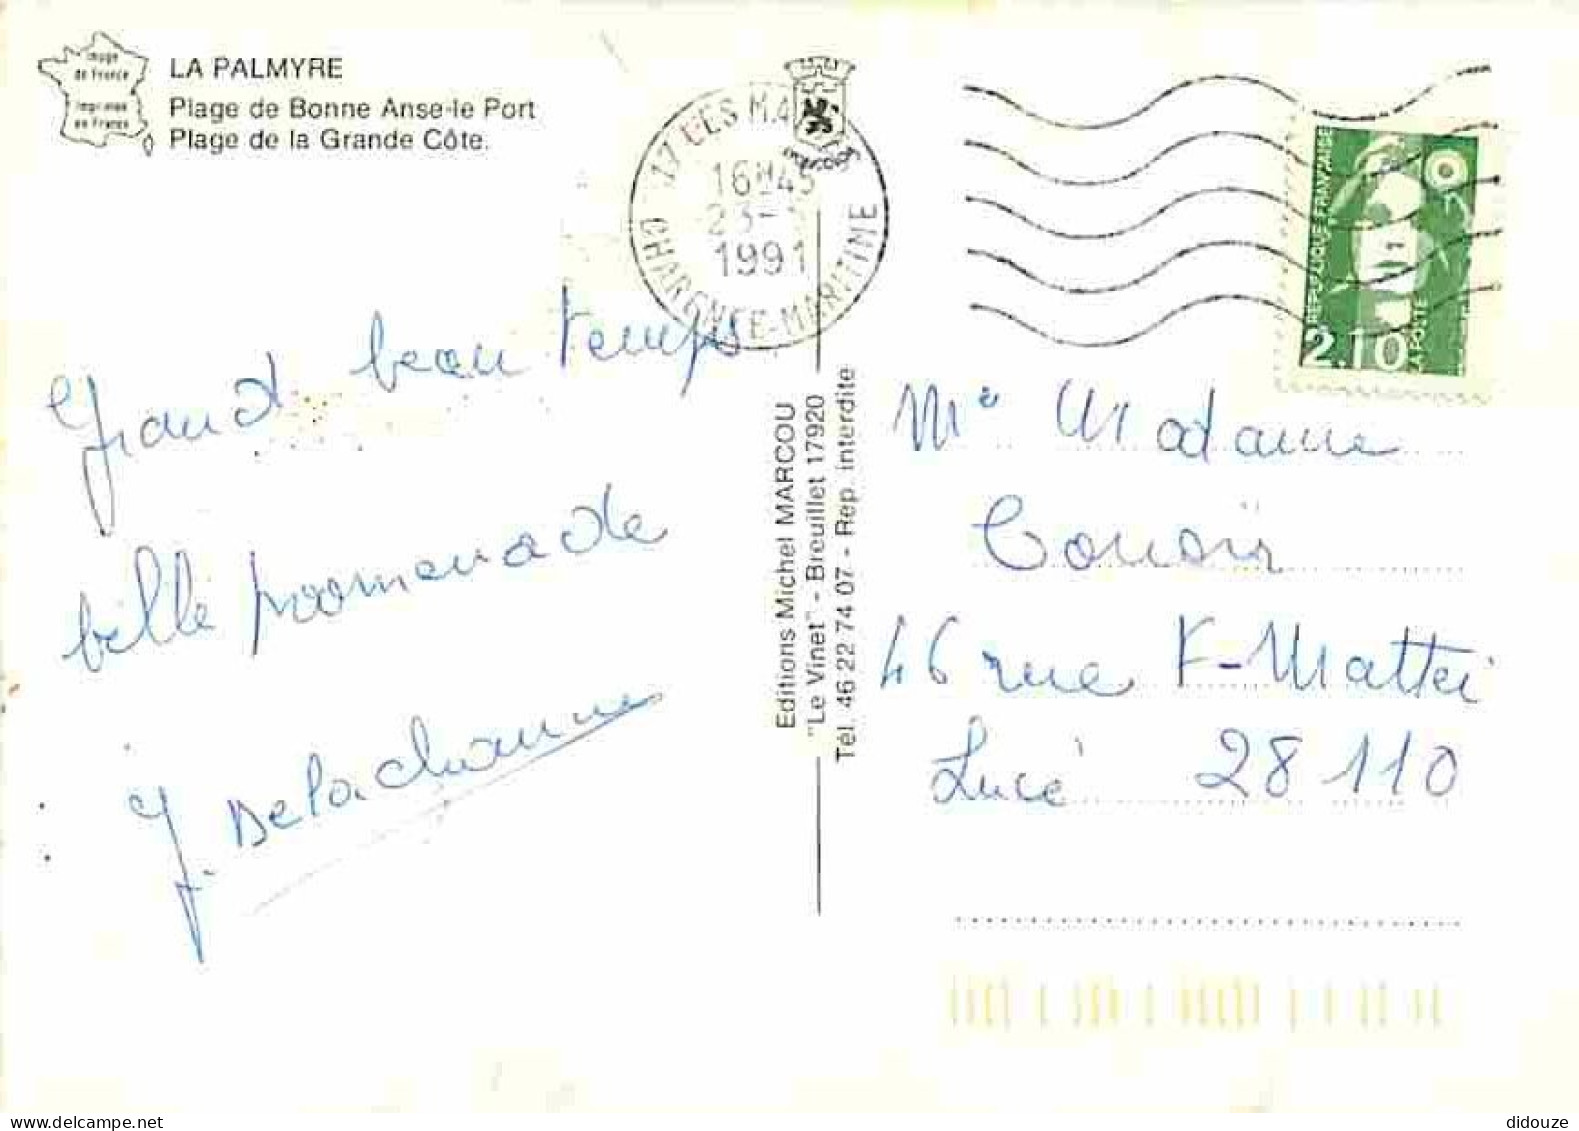 Image
de France
Imprimée
en France
LA PALMYRE
Plage de Bonne Anse-le Port
Plage de la Grande Côte.
17 LES MATHES
16H45
23-
1991
CHARENTE-MARITIME
REPUBLIQUE FRANÇAISE
LA POSTE
2.10
Grand beau temps
belle promenade
J. Delachaume
Editions Michel MARCOU
"Le Vinet" - Breuillet 17920
Tél. 46 22 74 07 - Rep. interdite
Madame
46 rue F-Mattei
Lucé 28 110
didouze